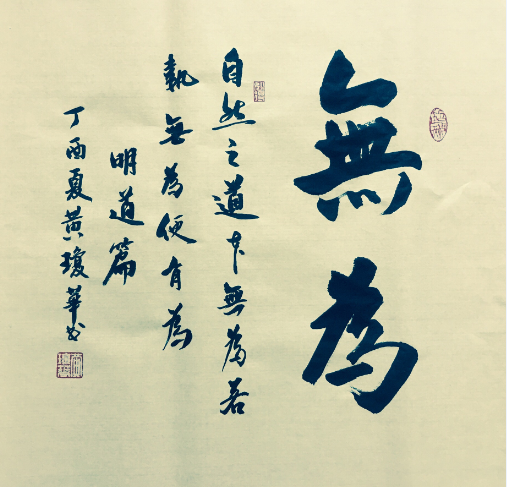 無為
自然之道本無為若
執無為便有為
明道篇
丁酉夏黃瓊華书